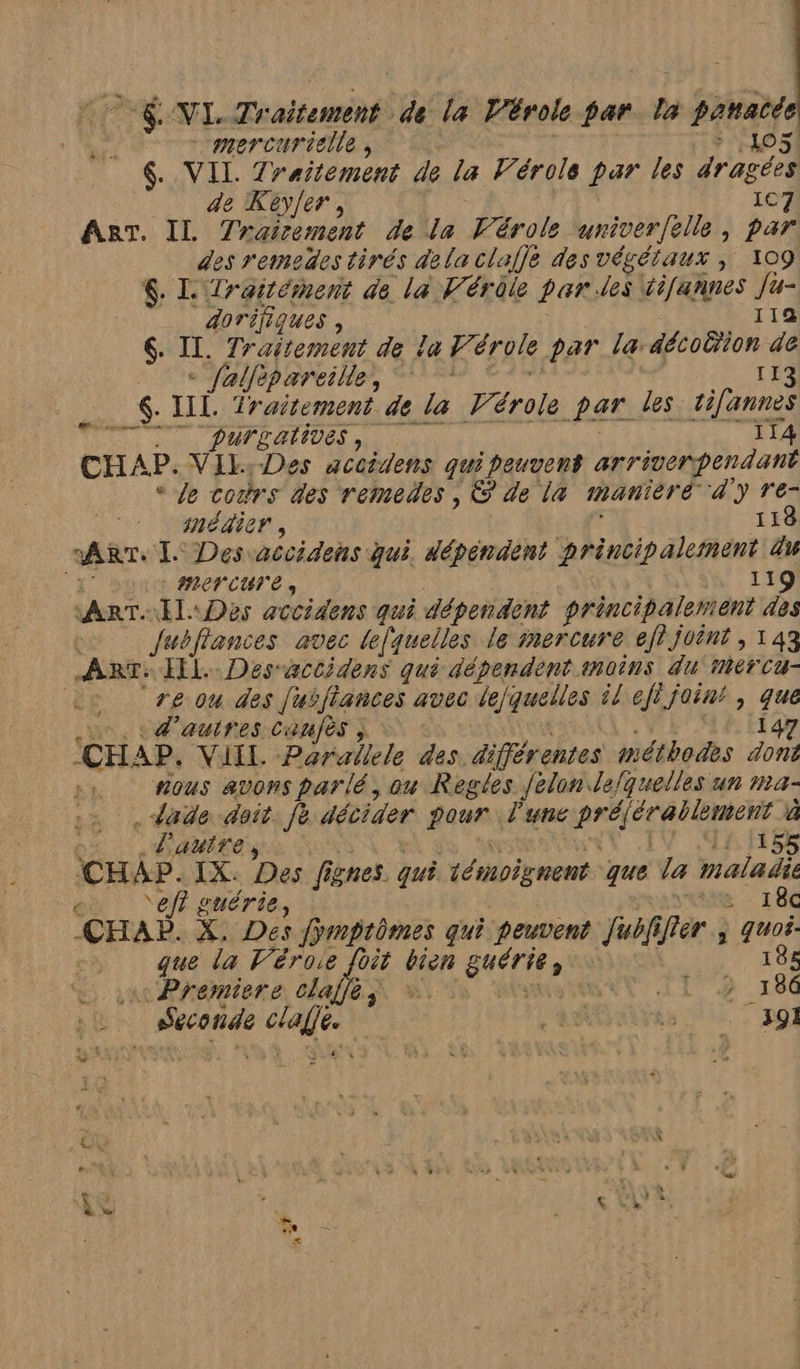 §. VI. Traitement de la Vérole par la panacée
mercurielle, 105
§. VII. Traitement de la Vérole par les dragées
de Keyſer, 107
Art. II. Traitement de la Vérole univerſelle, par
des remedes tirés de la claſſe des végétaux, 109
§. I. Traitement de la Vérole par les tiſannes ſu-
dorifiques, 112
§. II. Traitement de la Vérole par la décoction de
ſalſepareille, 113
§. III. Traitement de la Vérole par les tiſannes
purgatives, 114
CHAP. VII. Des accidens qui peuvent arriver pendant
le cours des remedes, & de la maniere d'y re-
médier, 118
Art. I. Des accidens qui dépendent principalement du
mercure, 119
Art. II. Des accidens qui dépendent principalement des
ſubſtances avec leſquelles le mercure eſt joint, 143
Art. III. Des accidens qui dépendent moins du mercu-
re ou des ſubſtances avec leſquelles il eſt joint, que
d'autres cauſes, 147
CHAP. VIII. Parallele des différentes méthodes dont
nous avons parlé, ou Regles ſelon leſquelles un ma-
lade doit ſe décider pour l'une préférablement à
l'autre, 155
CHAP. IX. Des ſignes qui témoignent que la maladie
eſt guérie, 180
CHAP. X. Des ſymptômes qui peuvent ſubſiſter, quoi-
que la Vérole ſoit bien guérie, 185
Premiere claſſe, 186
Seconde claſſe. 391